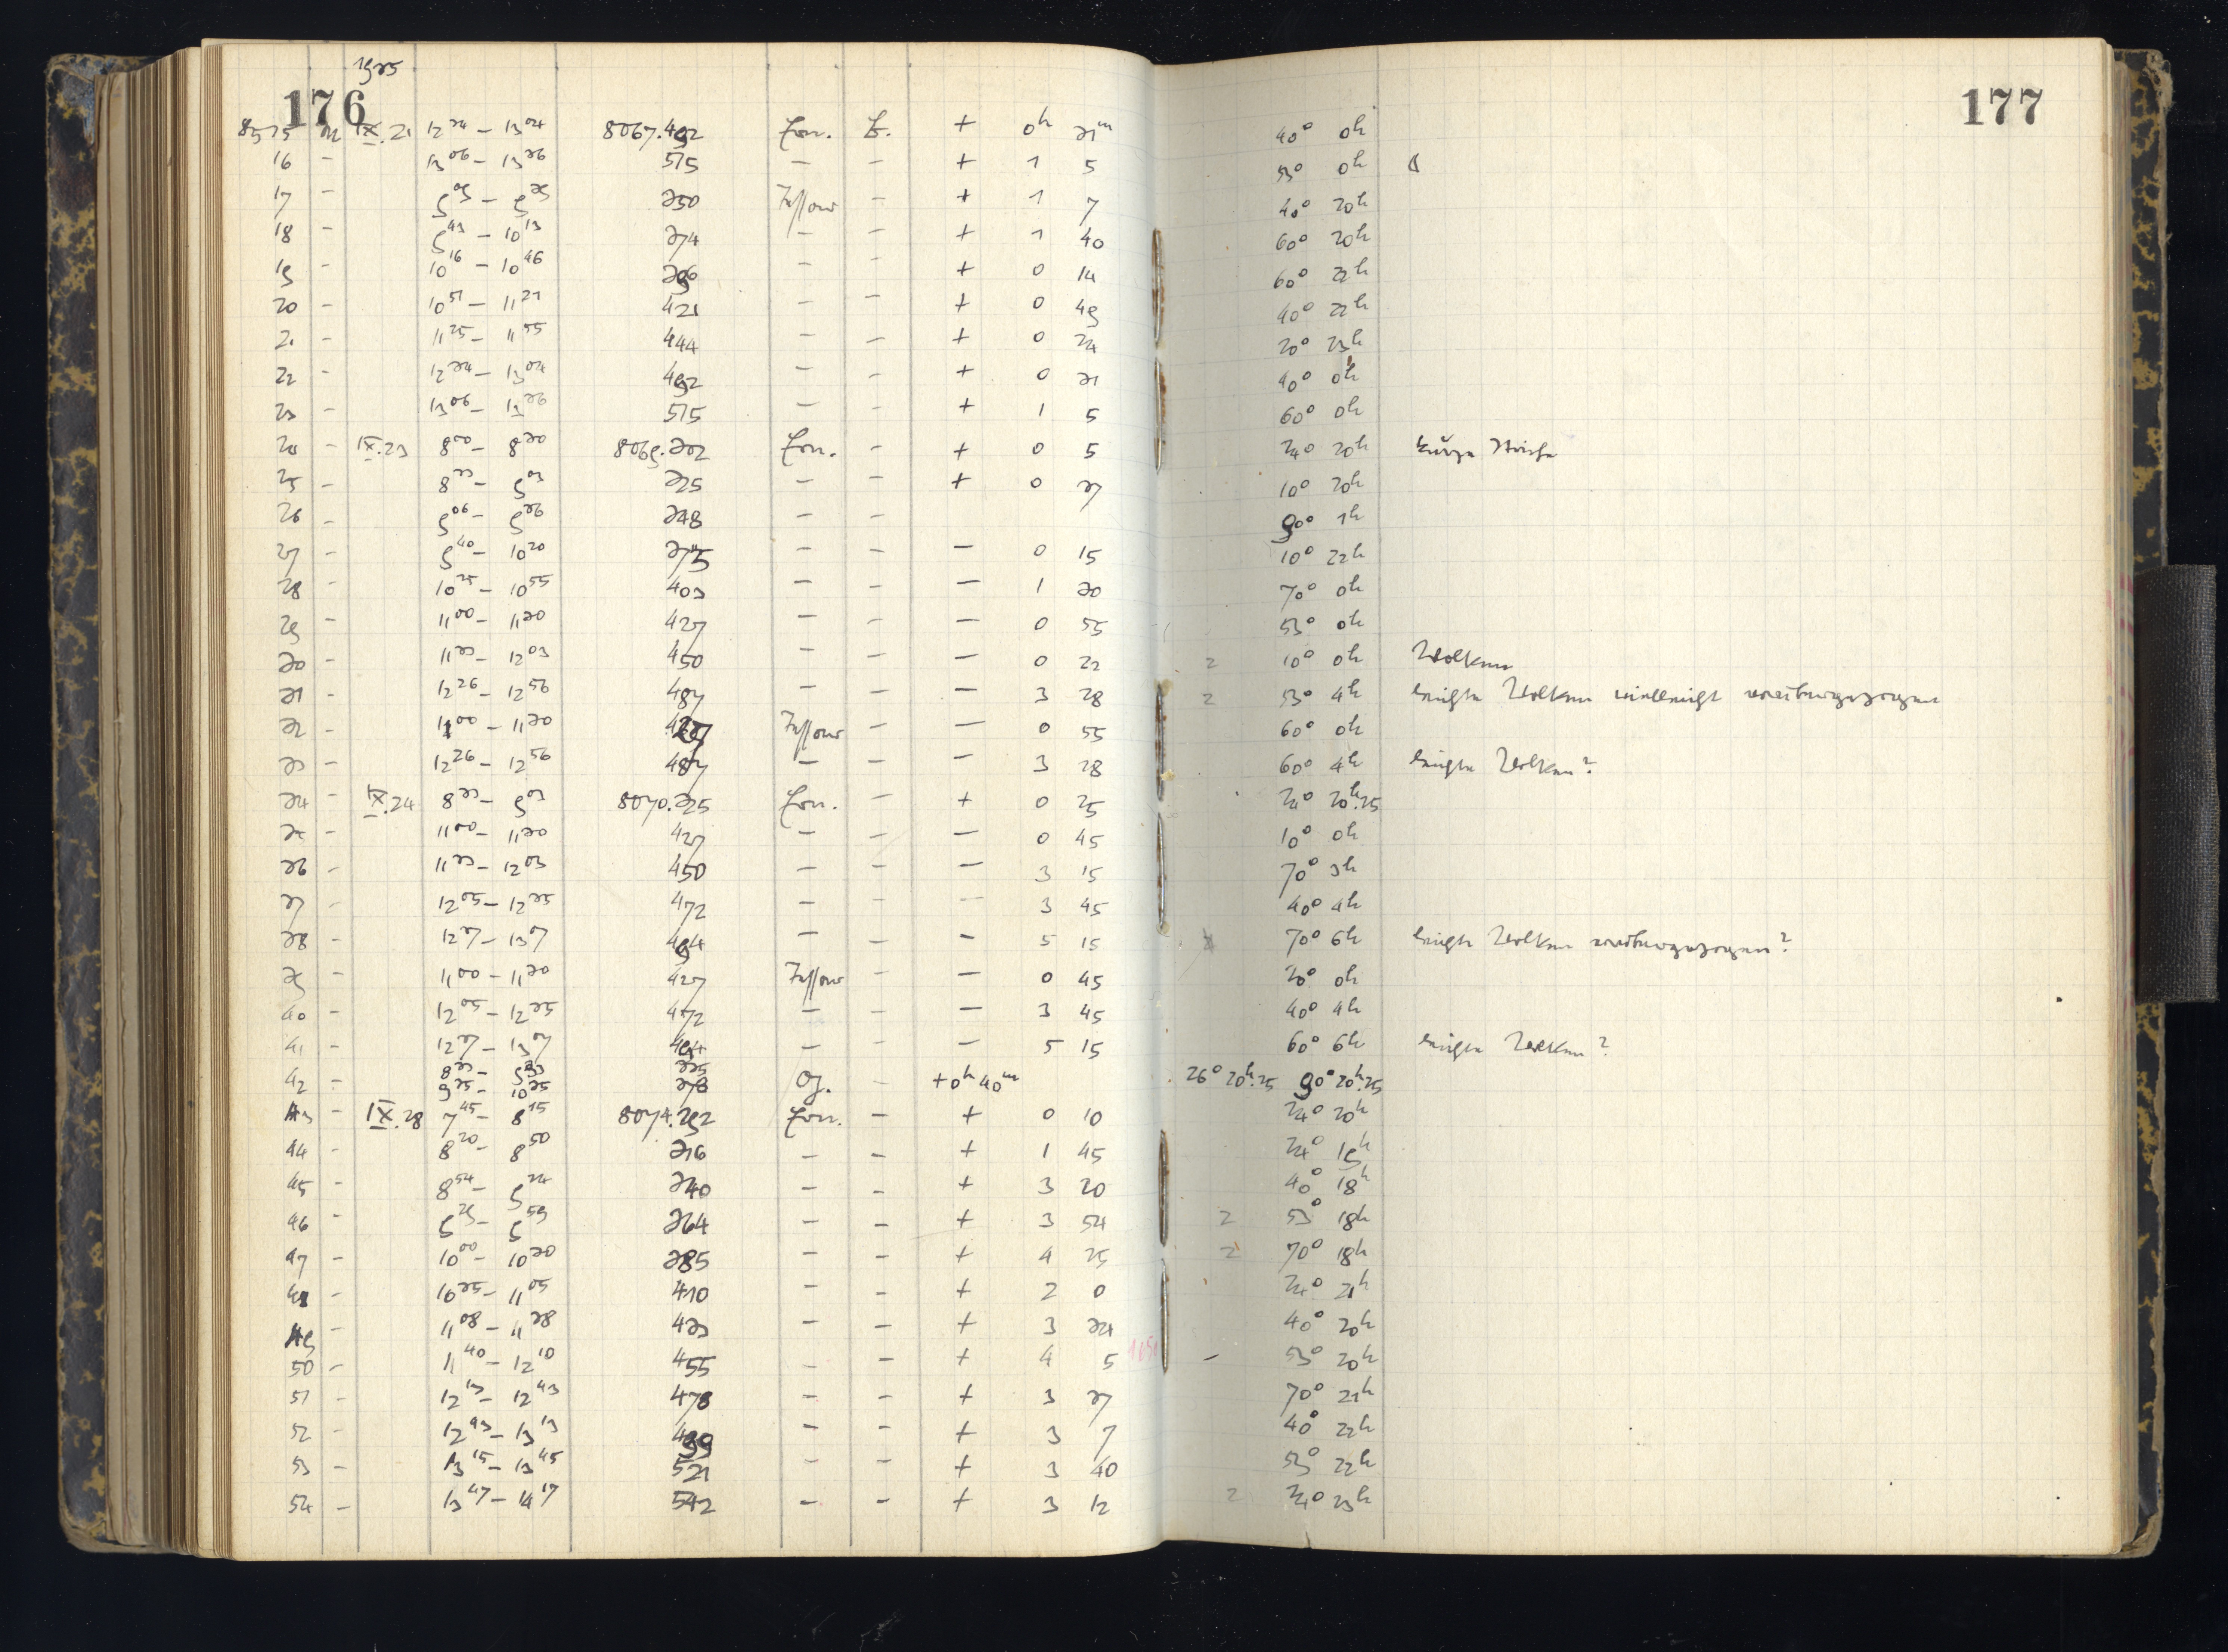 1935
176 177
8515 M IX.21 12³⁴ – 13⁰⁴ 8067.492 Ern. Z. + 0ʰ 31ᵐ 40° 0ʰ
16 – 13⁰⁶ – 13³⁶ 515 – – + 1 5 53° 0ʰ
17 – 9⁰⁹ – 9³⁹ 350 Tessar – + 1 7 40° 20ʰ
18 – 9⁴³ – 10¹³ 374 – – + 1 40 60° 20ʰ
19 – 10¹⁶ – 10⁴⁶ 396 – – + 0 14 60° 22ʰ
20 – 10⁵¹ – 11²¹ 421 – – + 0 49 40° 22ʰ
21 – 11²⁵ – 11⁵⁵ 444 – – + 0 24 20° 23ʰ
22 – 12³⁴ – 13⁰⁴ 492 – – + 0 31 40° 0ʰ
23 – 13⁰⁶ – 13³⁶ 515 – – + 1 5 60° 0ʰ
24 – IX.23 8⁰⁰ – 8³⁰ 8069.302 Ern. – + 0 5 24° 20ʰ kurze Striche
25 – 8³³ – 9⁰³ 325 – – + 0 37 10° 20ʰ
26 – 9⁰⁶ – 9³⁶ 348 – – 90° 1ʰ
27 – 9⁴⁰ – 10²⁰ 375 – – – 0 15 10° 22ʰ
28 – 10²⁵ – 10⁵⁵ 403 – – – 1 30 70° 0ʰ
29 – 11⁰⁰ – 11³⁰ 427 – – – 0 55 53° 0ʰ
30 – 11³³ – 12⁰³ 450 – – – 0 22 2 10° 0ʰ Wolken
31 – 12²⁶ – 12⁵⁶ 487 – – – 3 28 2 53° 4ʰ leichte Wolken vielleicht vorübergezogen
32 – 11⁰⁰ – 11³⁰ 427 Tessar – – 0 55 60° 0ʰ
33 – 12²⁶ – 12⁵⁶ 487 – – – 3 28 60° 4ʰ leichte Wolken?
34 – IX.24 8³³ – 9⁰³ 8070.325 Ern. – + 0 25 24° 20ʰ.25
35 – 11⁰⁰ – 11³⁰ 427 – – – 0 45 10° 0ʰ
36 – 11³³ – 12⁰³ 450 – – – 3 15 70° 3ʰ
37 – 12⁰⁵ – 12³⁵ 472 – – – 3 45 40° 4ʰ
38 – 12³⁷ – 13⁰⁷ 494 – – – 5 15 70° 6ʰ leichte Wolken vorübergezogen?
39 – 11⁰⁰ – 11³⁰ 427 Tessar – – 0 45 20° 0ʰ
40 – 12⁰⁵ – 12³⁵ 472 – – – 3 45 40° 4ʰ
41 – 12³⁷ – 13⁰⁷ 494 – – – 5 15 60° 6ʰ leichte Wolken?
8³³ – 9³³ 335
42 – 9³⁵ – 10³⁵ 378 – +0ʰ40ᵐ 26° 20ʰ.25 90° 20ʰ.25
43 – IX.28 7⁴⁵ – 8¹⁵ 8074.292 Ern. – + 0 10 24° 20ʰ
44 – 8²⁰ – 8⁵⁰ 316 – – + 1 45 24° 19ʰ
45 – 8⁵⁴ – 9²⁴ 340 – – + 3 20 40° 18ʰ
46 – 9²⁹ – 9⁵⁹ 364 – – + 3 54 2 53° 18ʰ
47 – 10⁰⁰ – 10³⁰ 385 – – + 4 25 2 70° 18ʰ
48 – 10³⁵ – 11⁰⁵ 410 – – + 2 0 24° 21ʰ
49 – 11⁰⁸ – 11³⁸ 433 – – + 3 34 40° 20ʰ
50 – 11⁴⁰ – 12¹⁰ 455 – – + 4 5 – 53° 20ʰ
51 – 12¹³ – 12⁴³ 478 – – + 3 37 70° 21ʰ
52 – 12⁴³ – 13¹³ 499 – – + 3 7 40° 22ʰ
53 – 13¹⁵ – 13⁴⁵ 521 – – + 3 40 53° 22ʰ
54 – 13⁴⁷ – 14¹⁷ 542 – – + 3 12 2 24° 23ʰ